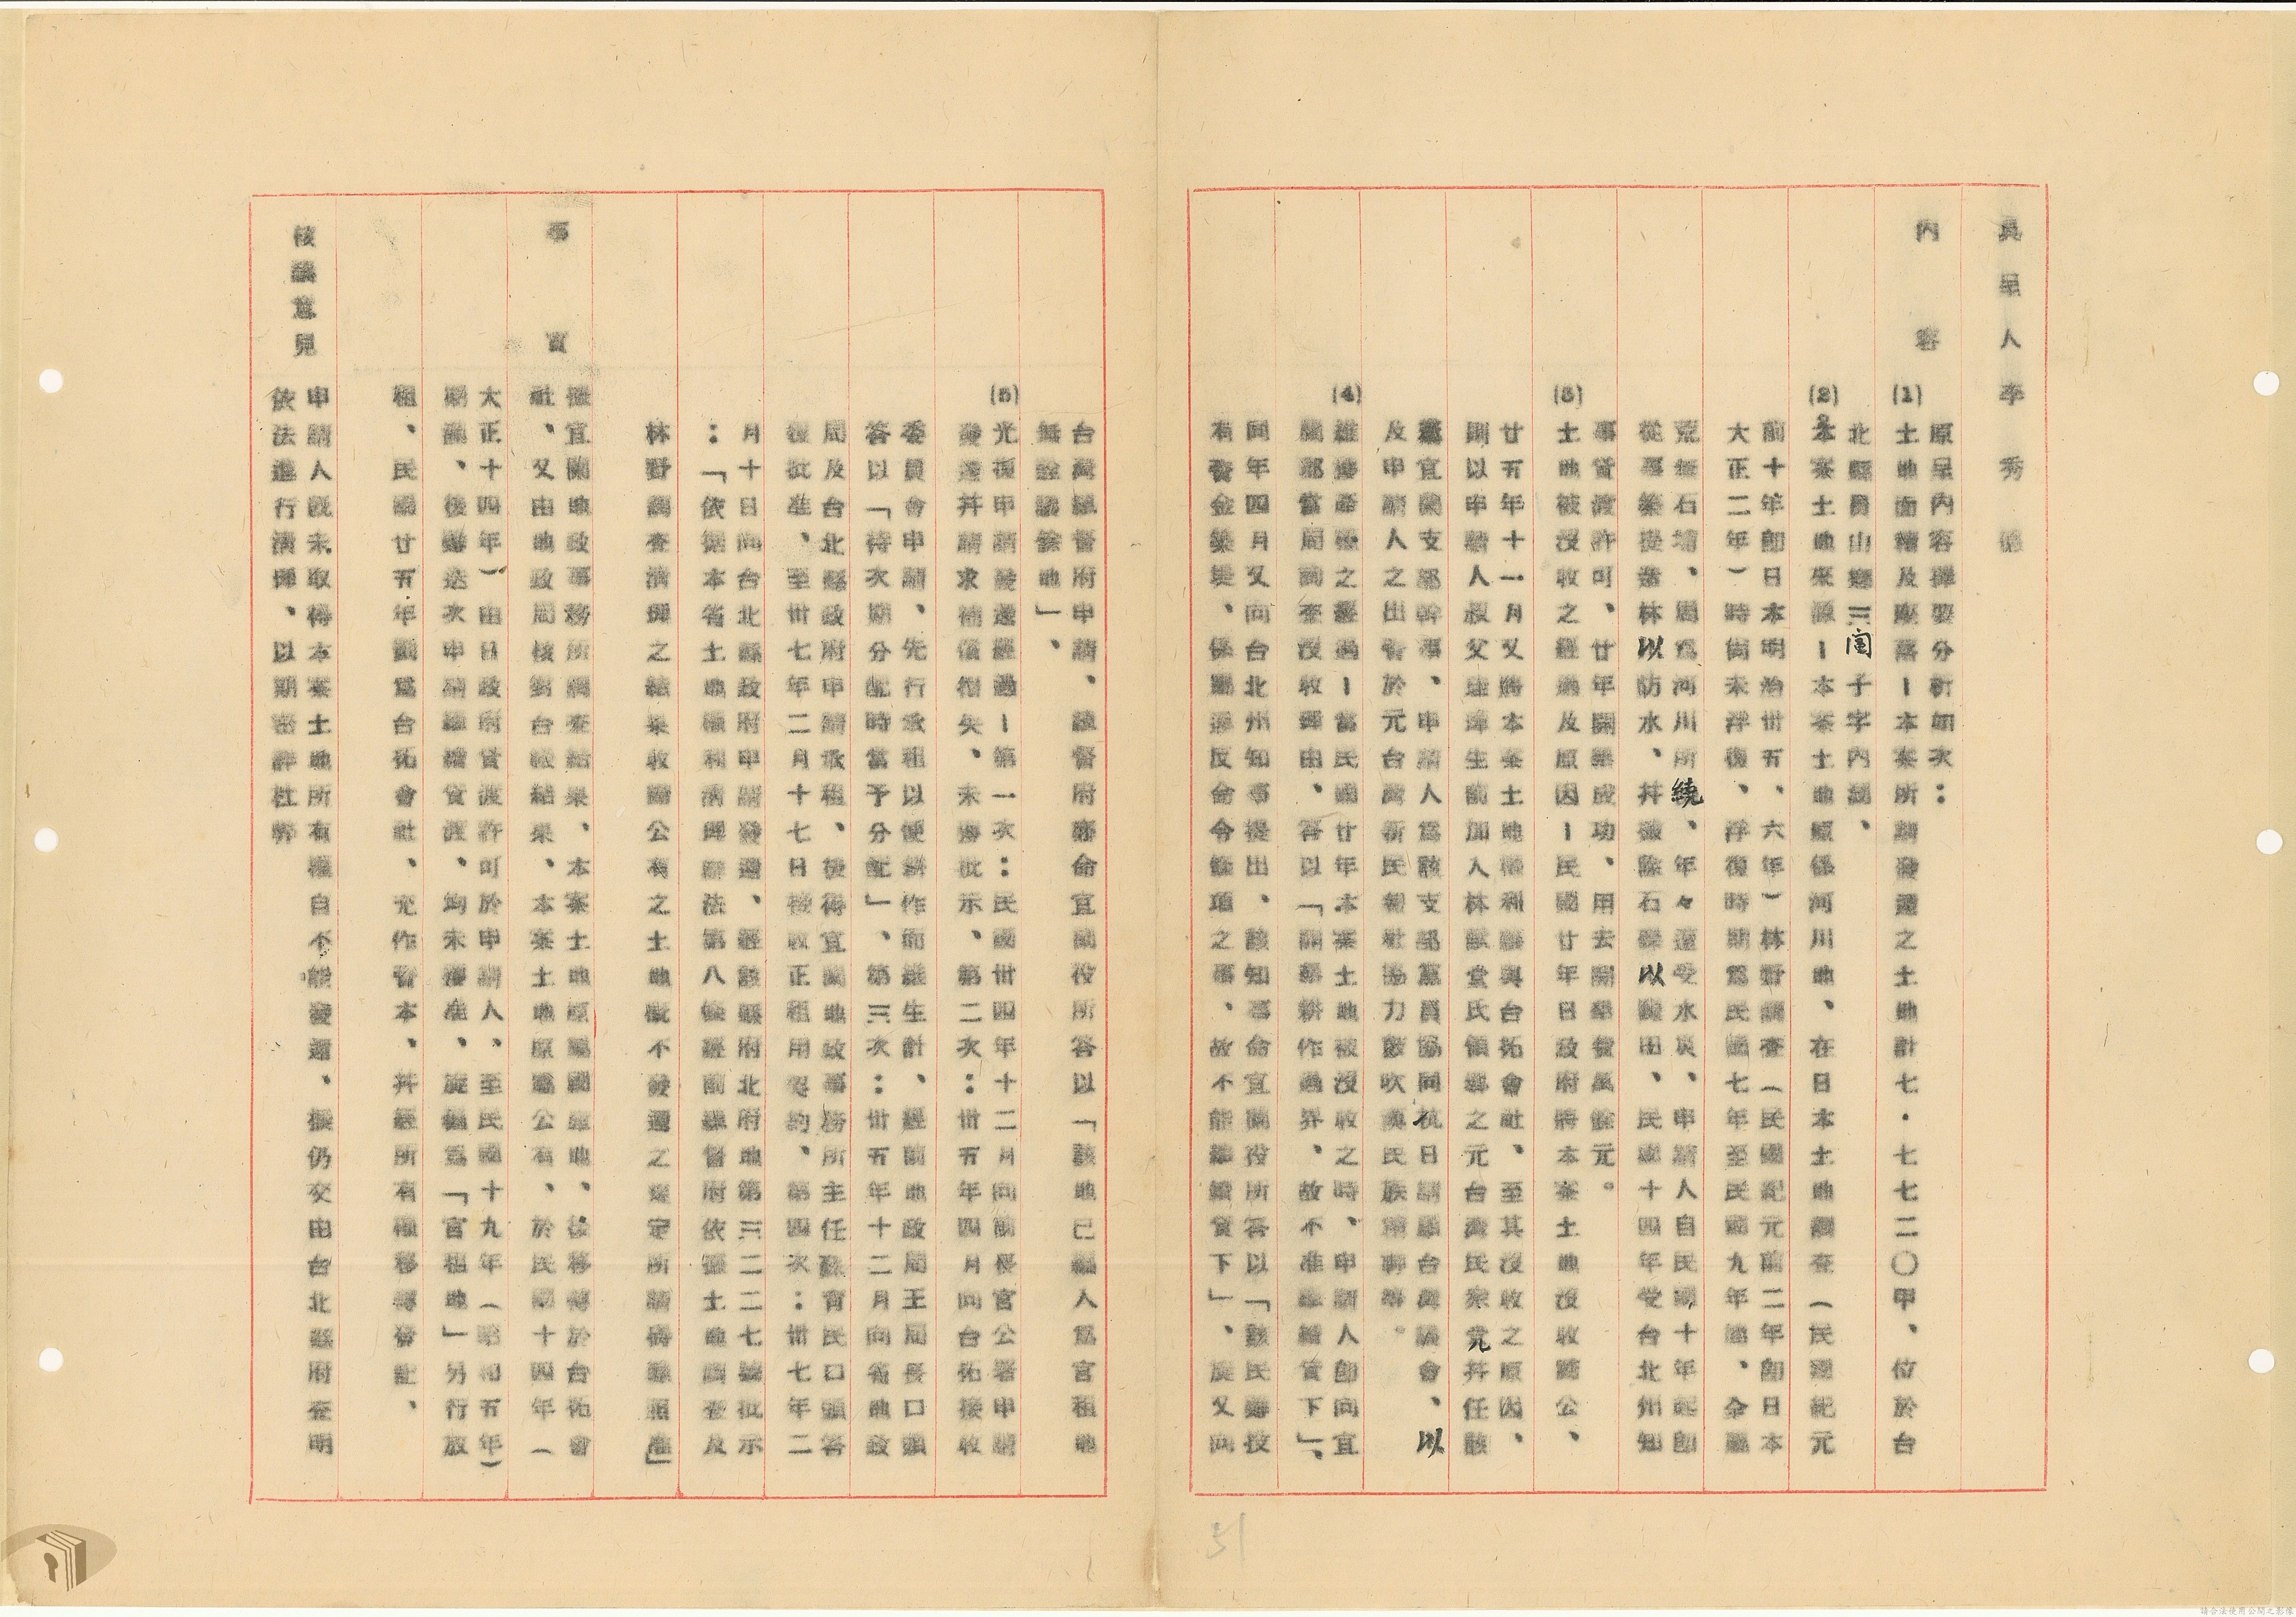 具呈人李秀德
內容
原呈內容擇要分析如次：
(1)土地面積及座落－本案所請發還之土地計七・七七二〇甲、位於台
北縣員山鄉三鬮子字內湖、
(2)本案土地來源－本案土地原係河川地、在日本土地調查（民國紀元
前十年卽日本明治卅五、六年）林野調查（民國紀元前二年卽日本
大正二年）時尚未浮復、浮復時期爲民國七年至民國九年頃、全屬
荒無石埔、周爲河川所繞、年々遭受水災、申請人自民國十年起卽
從事築提造林以防水、幷撤除石礫以闢田、民國十四年受台北州知
事貸渡許可、廿年開墾成功、用去開墾費萬餘元。
(3)土地被沒收之經過及原因－民國廿年日政府將本案土地沒收歸公、
廿五年十一月又將本案土地權利讓與台拓會社、至其沒收之原因、
則以申請人叔父逢津生前加入林獻堂氏領導之元台灣民衆党幷任該
黨宜蘭支部幹事、申請人爲該支部黨員協同抗日請願台灣議會、以
及申請人之出資於元台灣新民報社協力鼓吹漢民族精神等。
(4)維護舊權之經過－當民國廿年本案土地被沒收之時、申請人卽向宜
蘭郡當局調查沒收理由、答以「開墾耕作過界、故不准繼續貸下」、
同年四月又向台北州知事提出、該知事命宜蘭役所答以「該民雖投
有資金築堤、係屬違反命令條項之事、故不能繼續貸下」、旋又向
台灣總督府申請、該督府虧命宜蘭役所答以「該地已編入爲官租地
無餘議餘地」、
(5)光復申請發還經過－第一次：民國卅四年十二月向前長官公署申請
發還幷請求補償損失、未獲批示、第二次：卅五年四月向台拓接收
委員會申請、先行承租以便耕作而維生計、經前地政局王局長口頭
答以「待次期分配時當予分配」、第三次：卅五年十二月向省地政
局及台北縣政府申請承租、後得宜蘭地政事務所主任蘇育民口頭答
後批准、至卅七年二月十七日接收正租用契約、第四次：卅七年二
月十日向台北縣政府申請發還、經該縣府北府地第三二二七號批示
：「依據本省土地權利淸理辦法第八條經前總督府依據土地調查及
林野調查淸理之結果收歸公有之土地槪不發還之規定所請礙難照准」
事實
據宜蘭地政事務所調查結果、本案土地原屬國庫地、後移轉於台拓會
社、又由地政局核對台帳結果、本案土地原屬公有、於民國十四年（
大正十四年）由日政府貸渡許可於申請人、至民國十九年（昭和五年）
期滿、後雖迭次申請繼續貸渡、均未獲准、旋編爲「官租地」另行放
租、民國廿五年劃爲台拓會社、充作資本、幷經所有權移轉登記、
核議意見
申請人旣未取得本案土地所有權自不能發還、擬仍交由台北縣府查明
依法進行淸理、以期密辦杜弊
31
請合法使用公開之影像